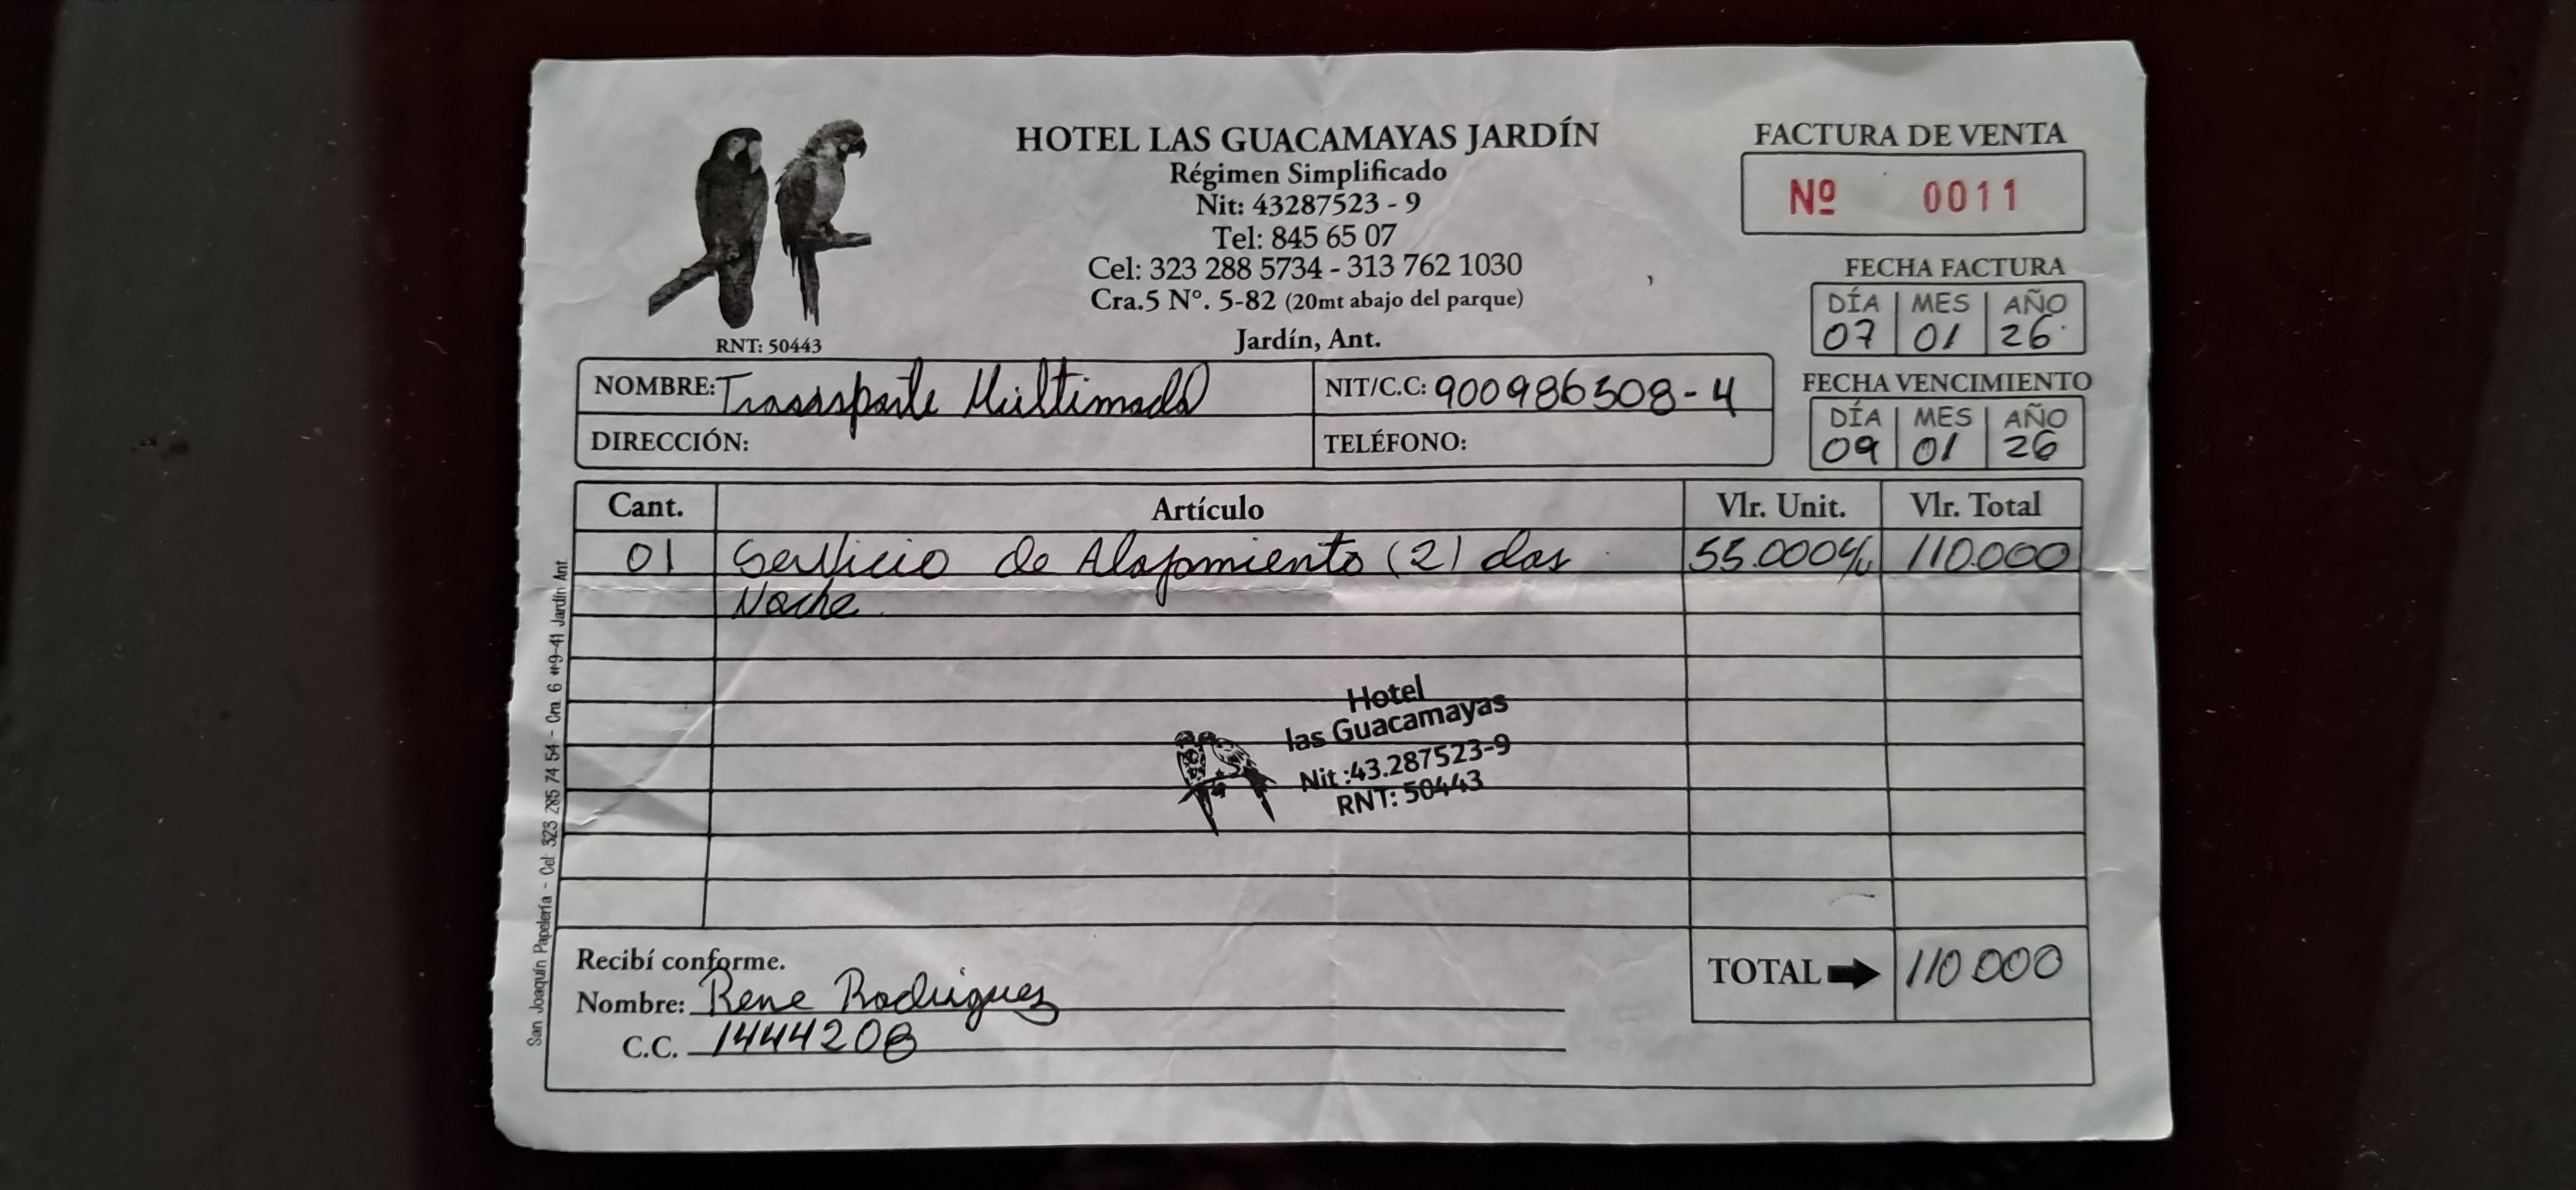 HOTEL LAS GUACAMAYAS JARDÍN
Régimen Simplificado
Nit: 43287523 - 9
Tel: 845 65 07
Cel: 323 288 5734 - 313 762 1030
Cra.5 Nº. 5-82 (20mt abajo del parque)
Jardín, Ant.
RNT: 50443
FACTURA DE VENTA
Nº 0011
FECHA FACTURA
DÍA MES AÑO
07 01 26
FECHA VENCIMIENTO
DÍA MES AÑO
09 01 26
NOMBRE: Transporte Multimodal
NIT/C.C: 900986508-4
DIRECCIÓN:
TELÉFONO:
Cant. Artículo Vlr. Unit. Vlr. Total
01 Servicio de Alojamiento (2) dos 55.000 110.000
Noche
Hotel
las Guacamayas
Nit :43.287523-9
RNT: 50443
Recibí conforme.
Nombre: Rene Rodriguez
C.C. 1444208
TOTAL 110.000
San Joaquín Papelería - Cel: 323 285 74 54 - Cra 6 #9-41 Jardín Ant